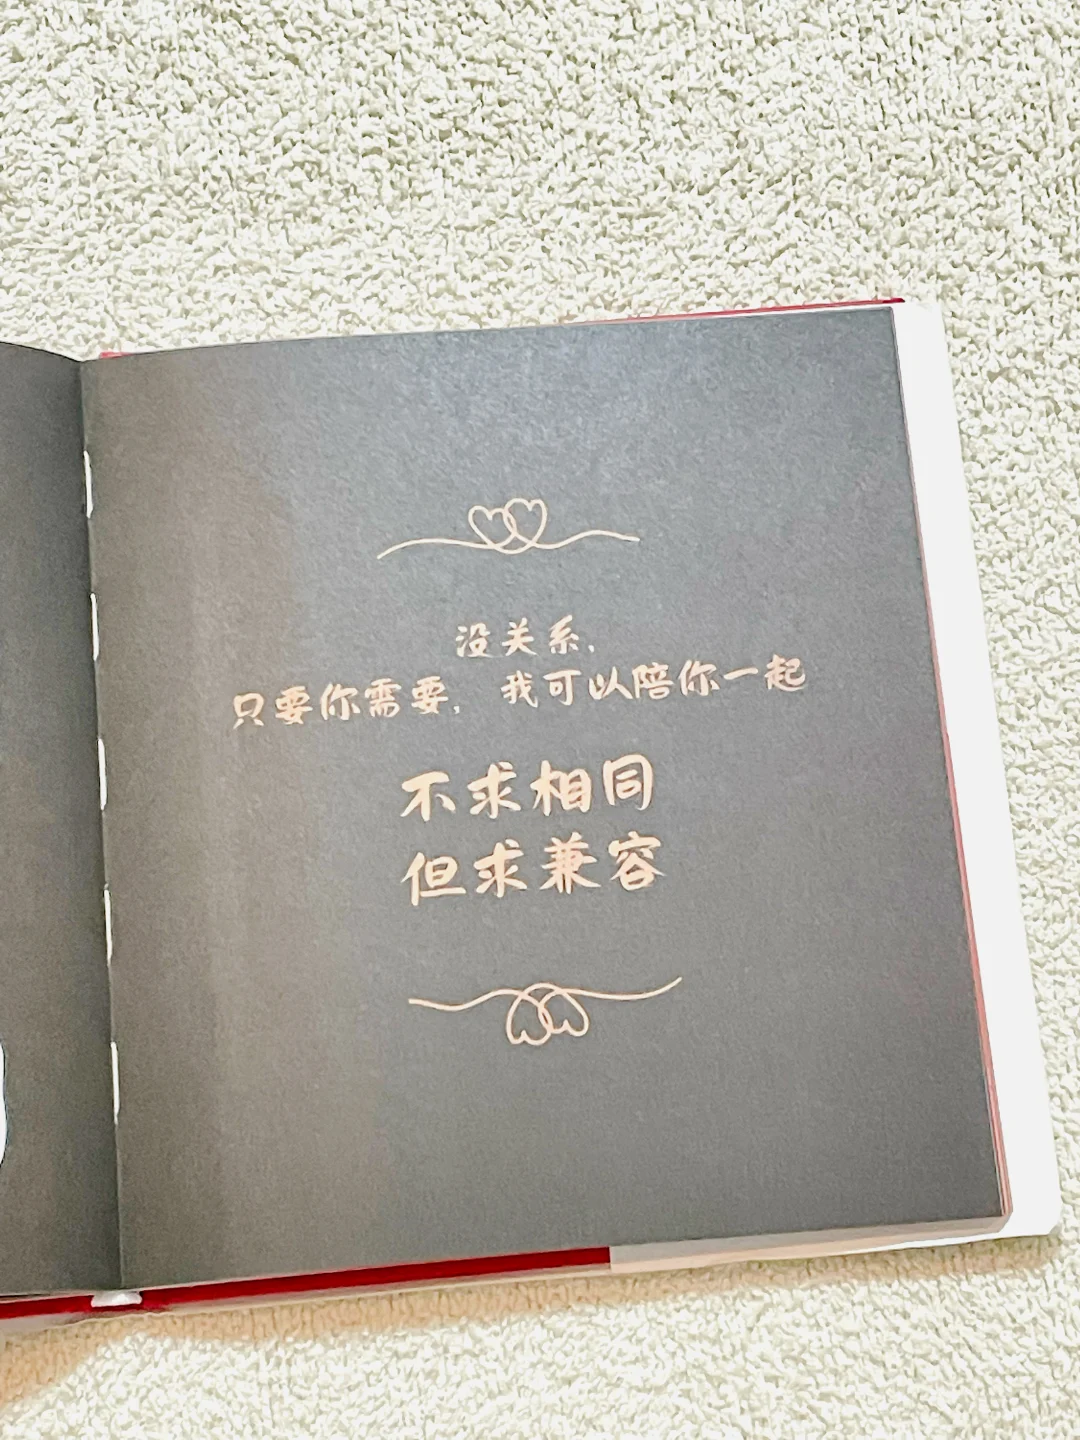 没关系，
只要你需要，我可以陪你一起
不求相同
但求兼容